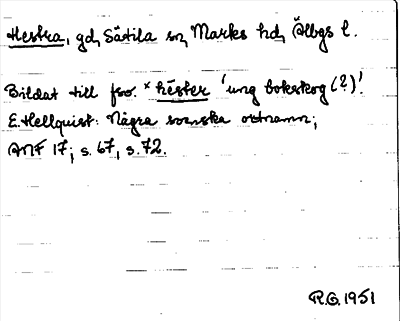 Hestra, gd, Sätila sn, Marks hd, Älbgs l.
Bildat till fsv. *hēster 'ung bokskog (?)'.
E. Hellquist: Några svenska ortnamn;
ANF 17; s. 67, s. 72.
R.G. 1951